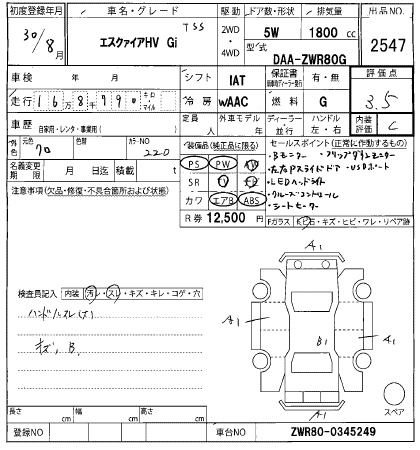 初度登録年月 車名・グレード 駆動 ドア数・形状 排気量 出品NO.
30/8月 エスクァイアHV Gi TSS 2WD・4WD 5W 1800 cc 2547
型式 DAA-ZWR80G
車検 年 月 シフト IAT 保証書 有・無 評価点
走行 1 6万8千790 キロ・マイル 冷房 WAAC 燃料 G 3.5
車歴 自家用・レンタ・事業用( ) 定員 人 外車モデル 年 ディーラー・並行 ハンドル 左・右 内装評価 C
外色 元色 クロ 色替 カラーNO 220
装備品(純正品に限る) セールスポイント(正常に作動するもの)
名義変更期限 月 日迄 積載 t
PS PW AW
SR TV
カワ エアB ABS
・Bモニター ・フリップダウンモニター
・左右Pスライドドア ・USBポート
・LEDヘッドライト
・クルーズコントロール
・シートヒーター
注意事項(欠品・修復・不具合箇所および状態)
R券 12,500 円
Fガラス 飛ビ石・キズ・ヒビ・ワレ・リペア跡
検査員記入 内装 汚レ・スレ・キズ・キレ・コゲ・穴
ハンドルスレ(大)
キズ, B.
A1
A1
B1
A1
A1
スペア
長さ cm 幅 cm 高さ cm
登録NO 車台NO ZWR80-0345249